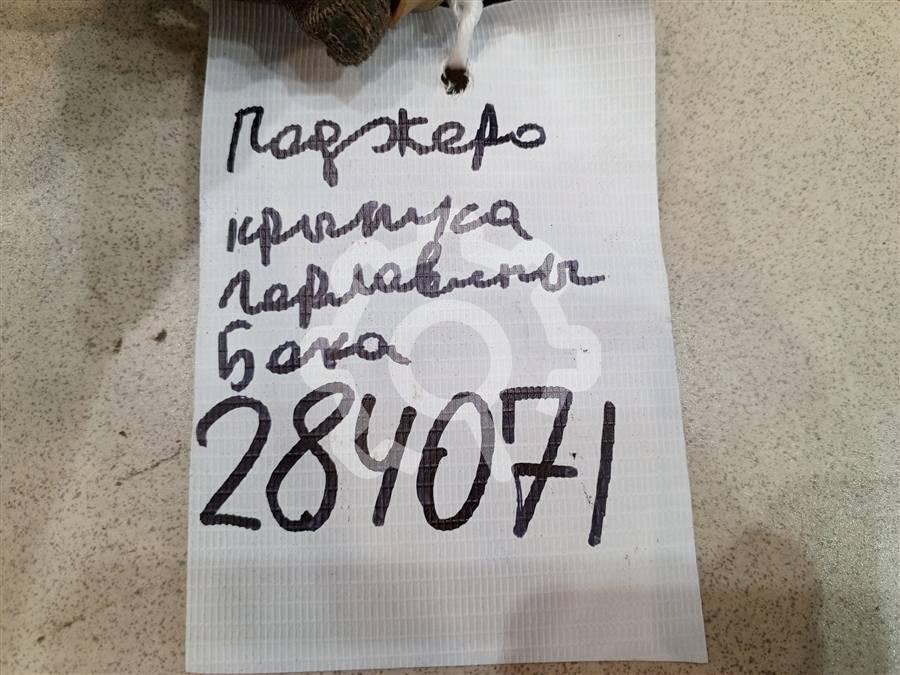 Паджеро
крышка
горловины
Бака
284071